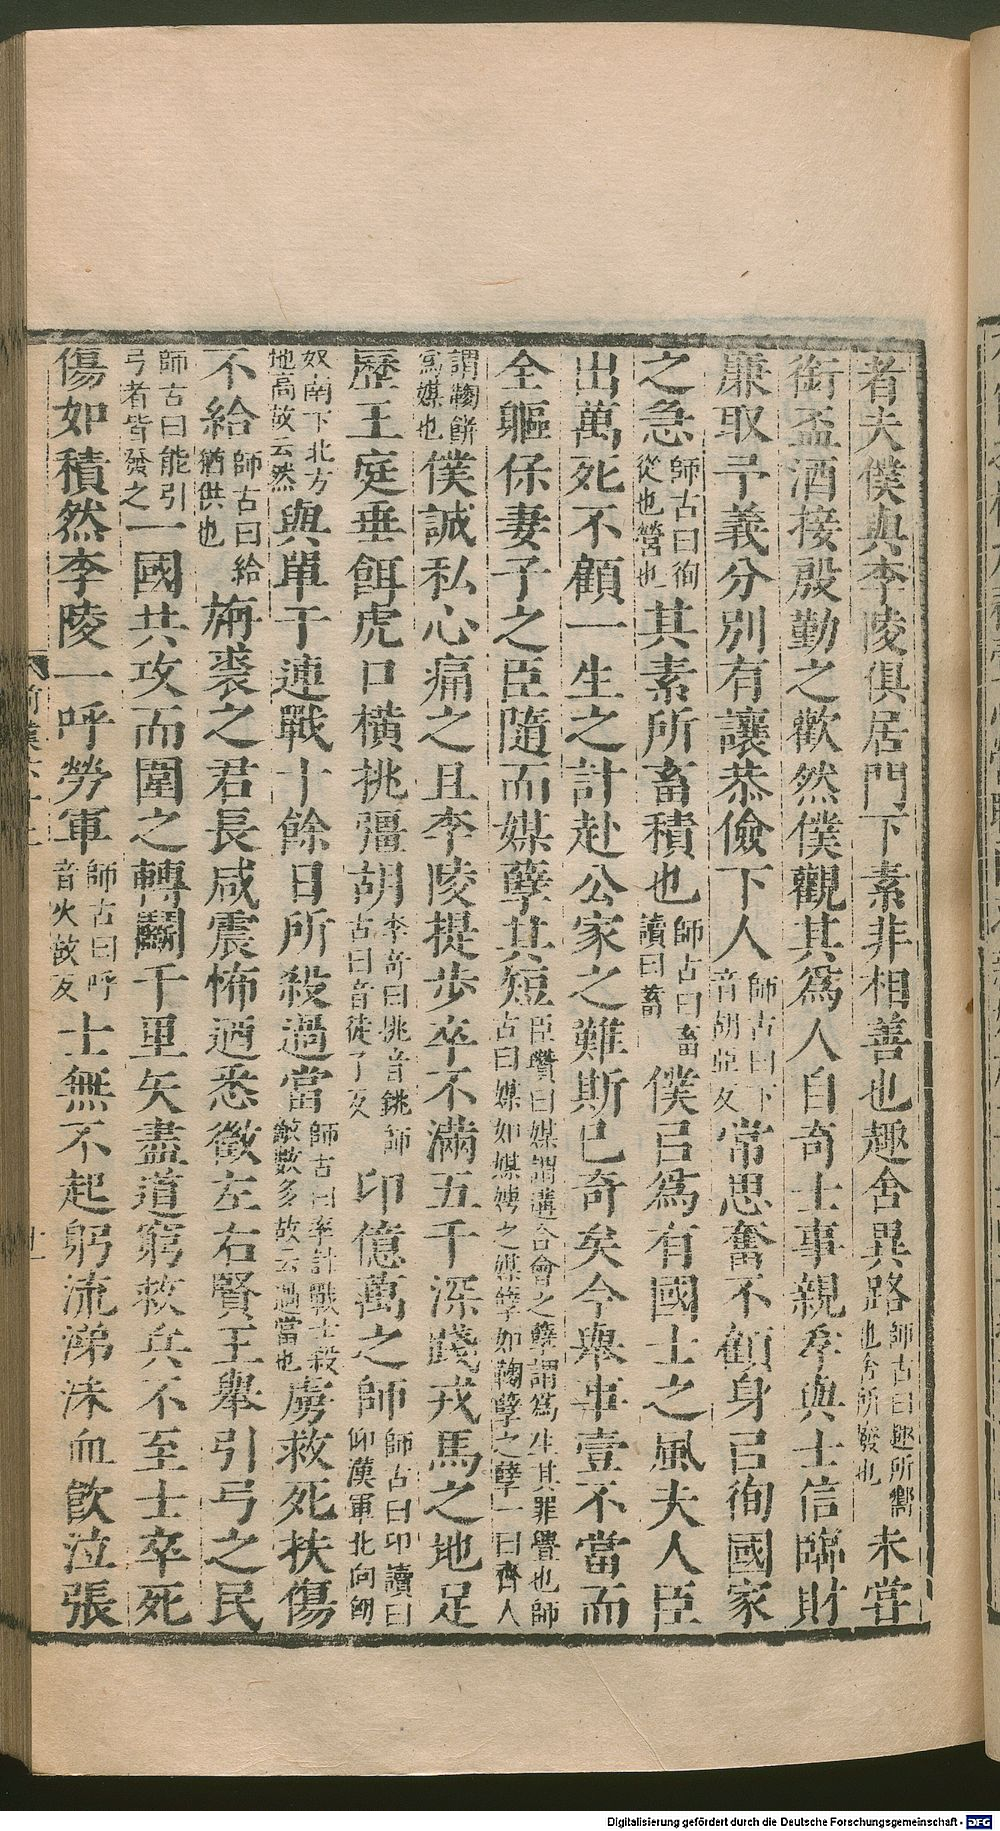 者夫僕與李陵俱居門下素非相善也趣舍異路師古曰趣所嚮也舍所廢也未嘗
銜盃酒接殷勤之歡然僕觀其爲人自奇士事親孝與士信臨財
廉取予義分別有讓恭儉下人師古曰下音胡亞反常思奮不顧身㠯徇國家
之急師古曰徇從也營也其素所畜積也師古曰畜讀曰蓄僕㠯爲有國士之風夫人臣
出萬死不顧一生之計赴公家之難斯已奇矣今舉事壹不當而
全軀保妻子之臣隨而媒孽其短臣瓚曰媒謂遘合會之孽謂爲生其罪舋也師古曰媒如媒娉之媒孽如麴孽之孽一曰齊人
謂麴餅爲媒也僕誠私心痛之且李陵提步卒不滿五千深踐戎馬之地足
歷王庭垂餌虎口橫挑彊胡李奇曰挑音誂師古曰音徒了反卬億萬之師師古曰卬讀曰仰漢軍北向匈
奴南下北方地高故云然與單于連戰十餘日所殺過當師古曰率計戰士殺敵數多故云過當也虜救死扶傷
不給師古曰給猶供也旃裘之君長咸震怖迺悉徵左右賢王舉引弓之民
師古曰能引弓者皆發之一國共攻而圍之轉鬭千里矢盡道窮救兵不至士卒死
傷如積然李陵一呼勞軍師古曰呼音火故反士無不起躬流涕沬血飮泣張
Digitalisierung gefördert durch die Deutsche Forschungsgemeinschaft - DFG